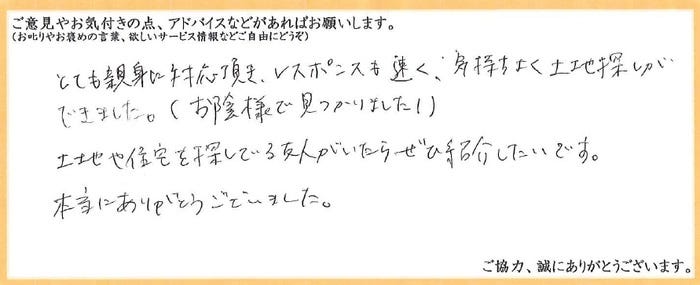 ご意見やお気付きの点、アドバイスなどがあればお願いします。
(お叱りやお褒めの言葉、欲しいサービス情報などご自由にどうぞ)
とても親身に対応頂き、レスポンスも速く、気持ちよく土地探しが
できました。(お陰様で見つかりました!)
土地や住宅を探している友人がいたらぜひ紹介したいです。
本当にありがとうございました。
ご協力、誠にありがとうございます。